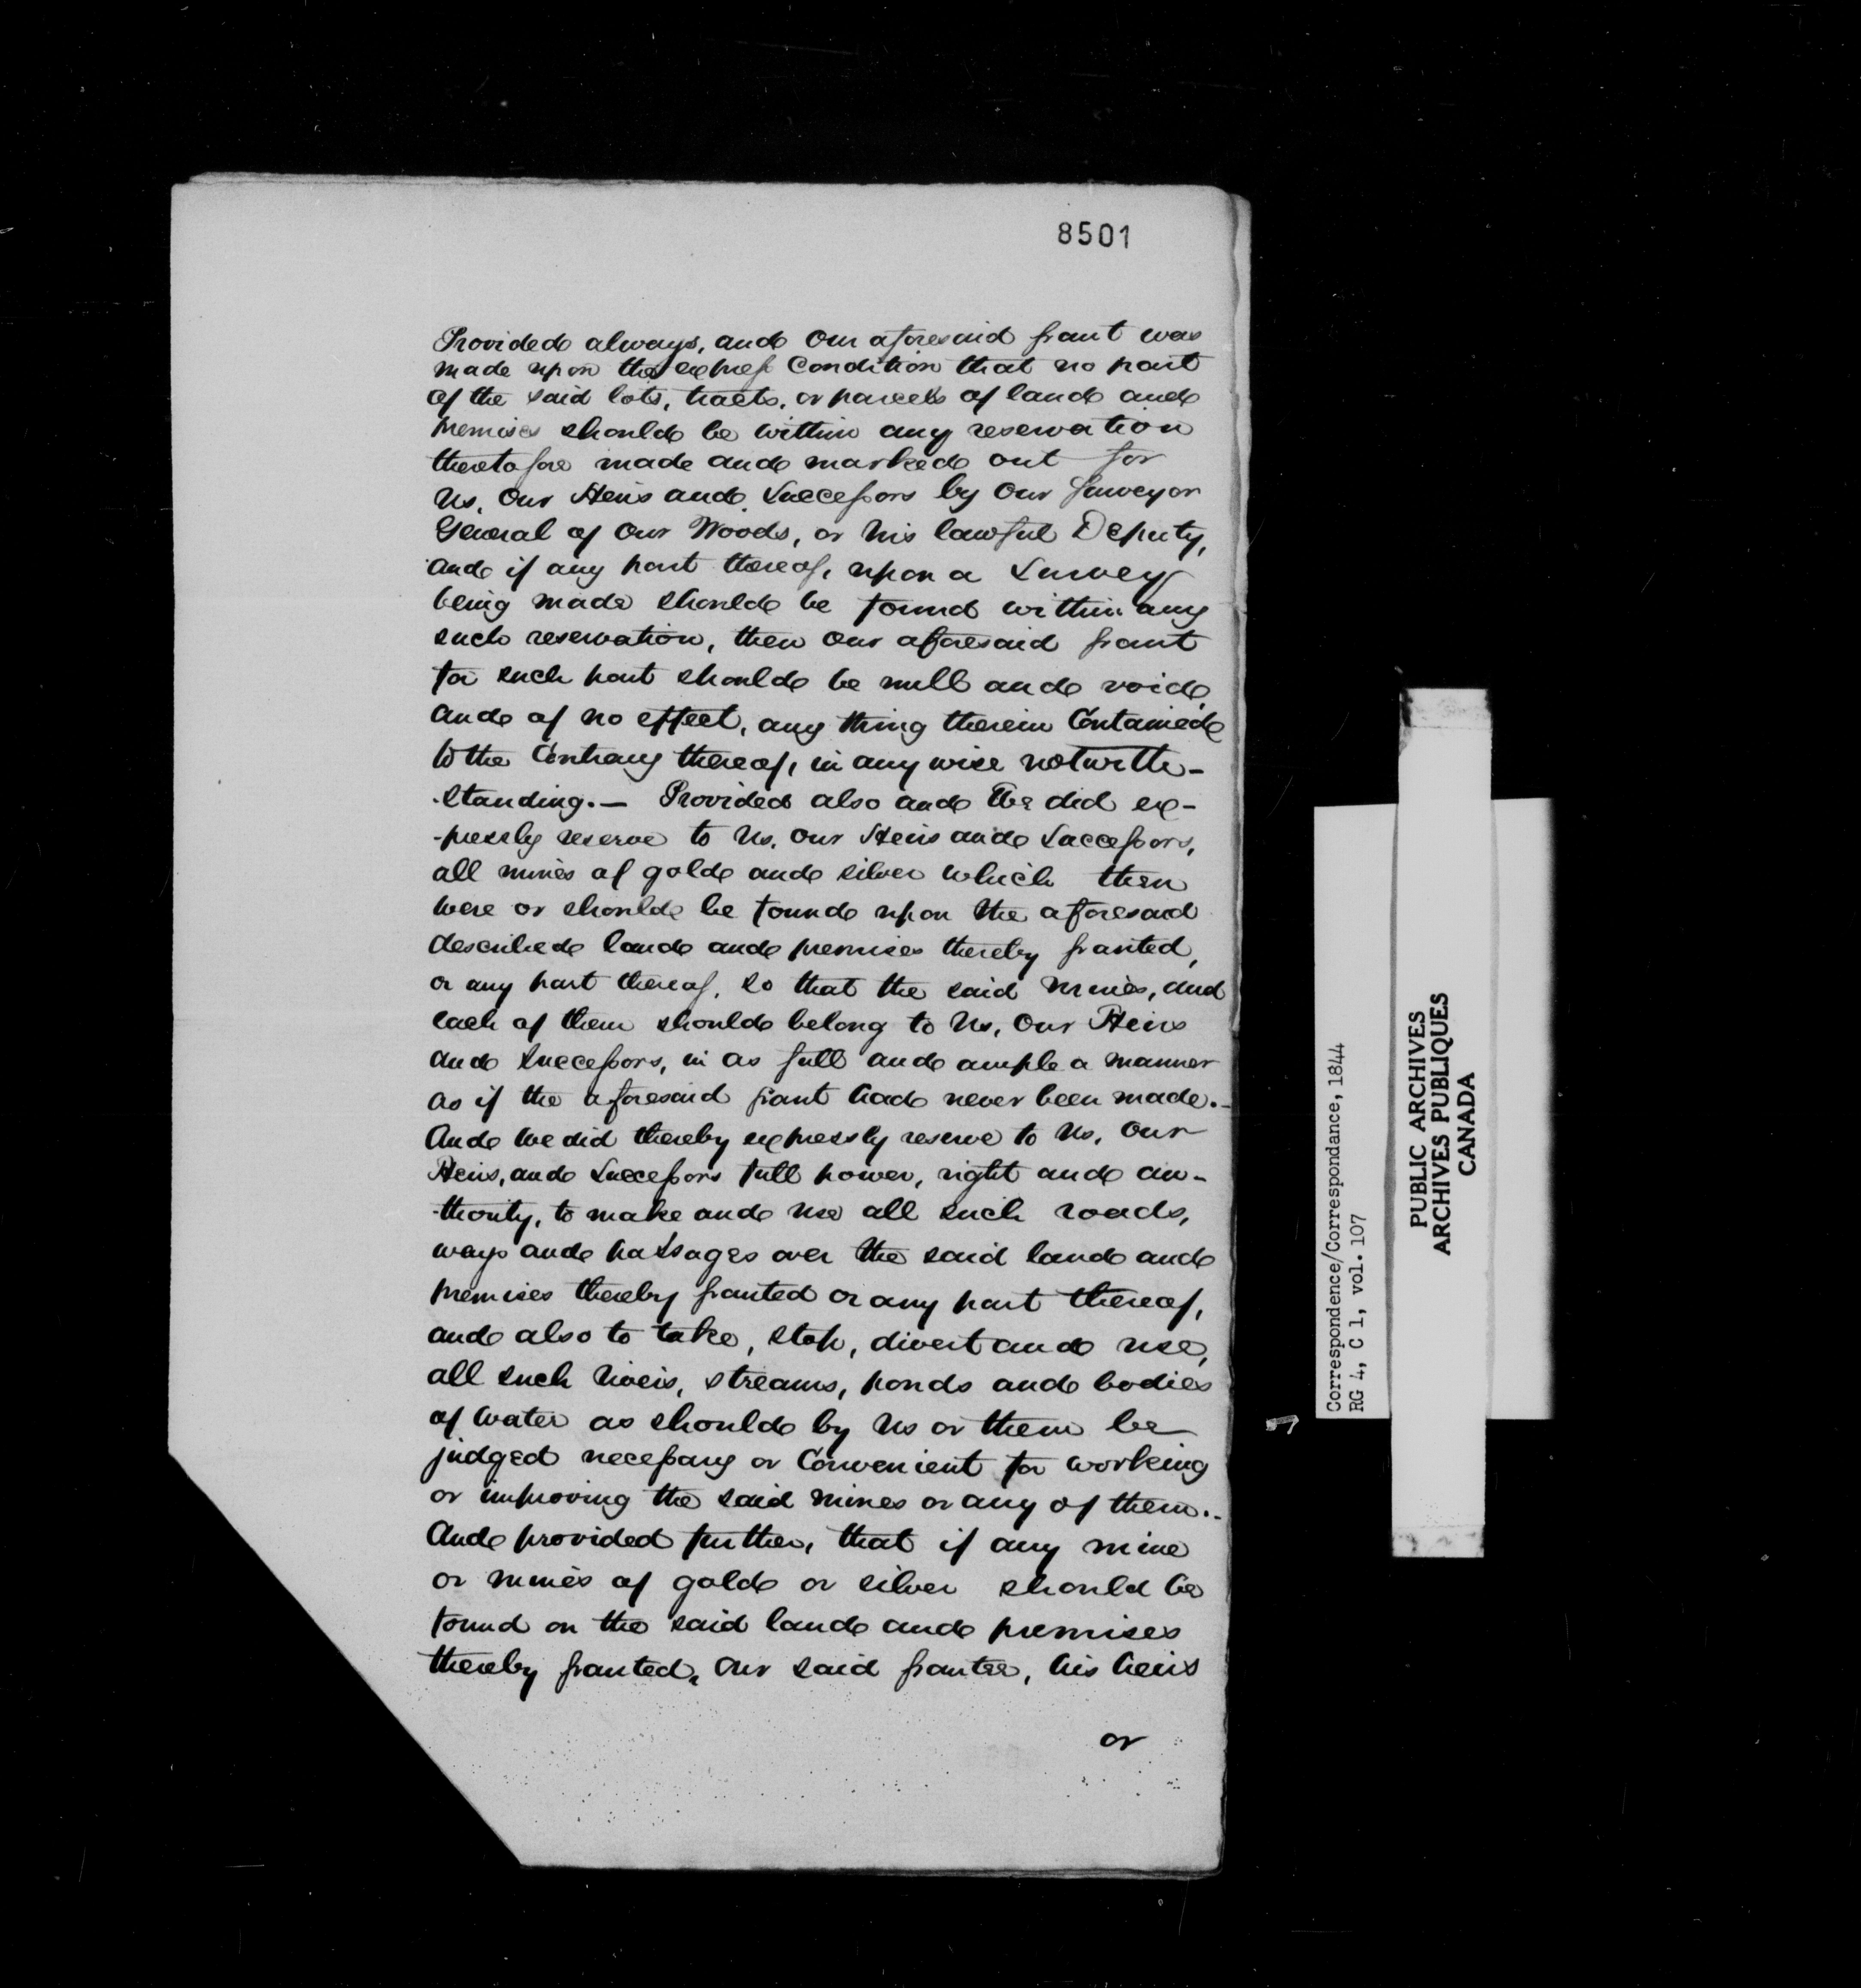 8501
Provided always, and Our aforesaid grant was
made upon the express Condition that no part
of the said lots, tracts, or parcels of land and
premises should be within any reservation
theretofore made and marked out for
Us, Our Heirs and Successors by Our Surveyor
General of Our Woods, or his lawful Deputy,
and if any part thereof, upon a Survey
being made should be found within any
such reservation, then Our aforesaid grant
for such part should be null and void,
and of no effect, any thing therein Contained
to the Contrary thereof, in any wise notwith-
-standing.— Provided also and We did ex-
-pressly reserve to Us, Our Heirs and Successors,
all mines of gold and silver which then
were or should be found upon the aforesaid
described land and premises thereby granted,
or any part thereof, so that the said Mines, and
each of them should belong to Us, Our Heirs
and Successors, in as full and ample a manner
as if the aforesaid grant had never been made.-
And We did thereby expressly reserve to Us, Our
Heirs, and Successors full power, right and au-
-thority, to make and use all such roads,
ways and passages over the said land and
premises thereby granted or any part thereof,
and also to take, stop, divert and use,
all such rivers, streams, ponds and bodies
of water as should by Us or them be
judged necessary or Convenient for working
or improving the said mines or any of them.-
And provided further, that if any mine
or mines of gold or silver should be
found on the said land and premises
thereby granted, Our said grantee, his heirs
or
Correspondence/Correspondance, 1844
RG 4, C 1, vol. 107
PUBLIC ARCHIVES
ARCHIVES PUBLIQUES
CANADA